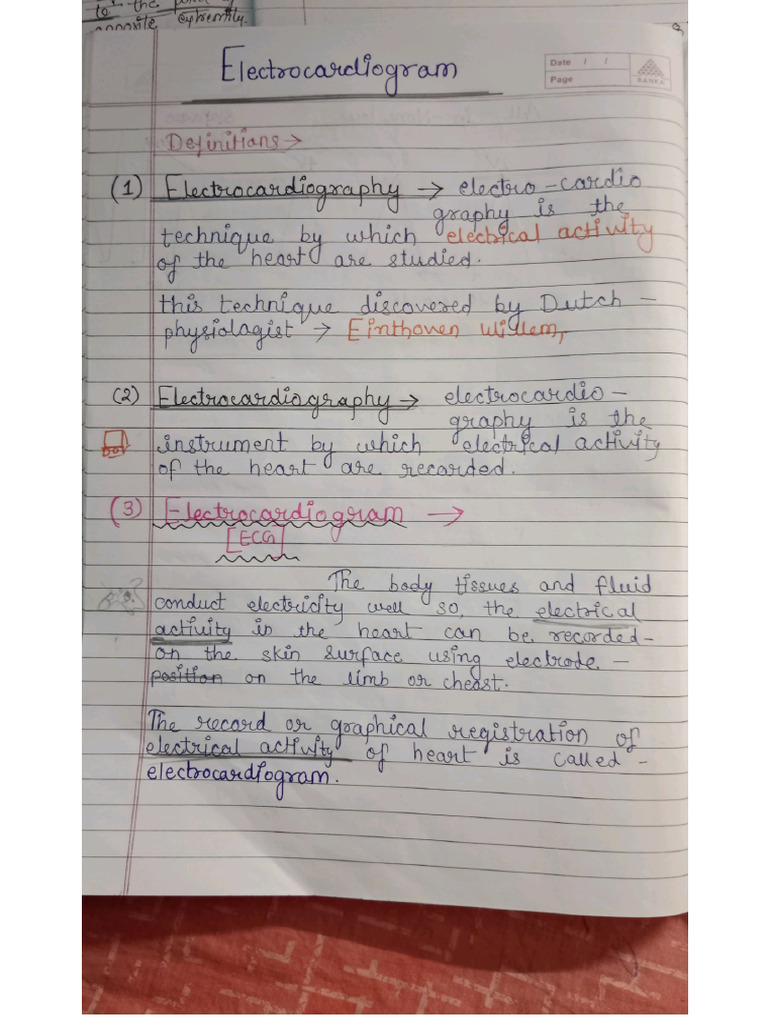 to the
opposite extremity.
Electrocardiogram
Date / /
Page
SANKA
Definitians →
(1) Electrocardiography → electro-cardio
graphy is the
technique by which electrical activity
of the heart are studied.
this technique discovered by Dutch-
physiologist → Einthoven Willem,
(2) Electrocardiography → electrocardio-
graphy is the
instrument by which electrical activity
of the heart are recorded.
(3) Electrocardiogram →
[ECG]
The body tissues and fluid
conduct electricity well so, the electrical
activity in the heart can be recorded-
on the skin surface using electrode -
position on the limb or cheast.
The record or graphical registration of
electrical activity of heart is called -
electrocardiogram.